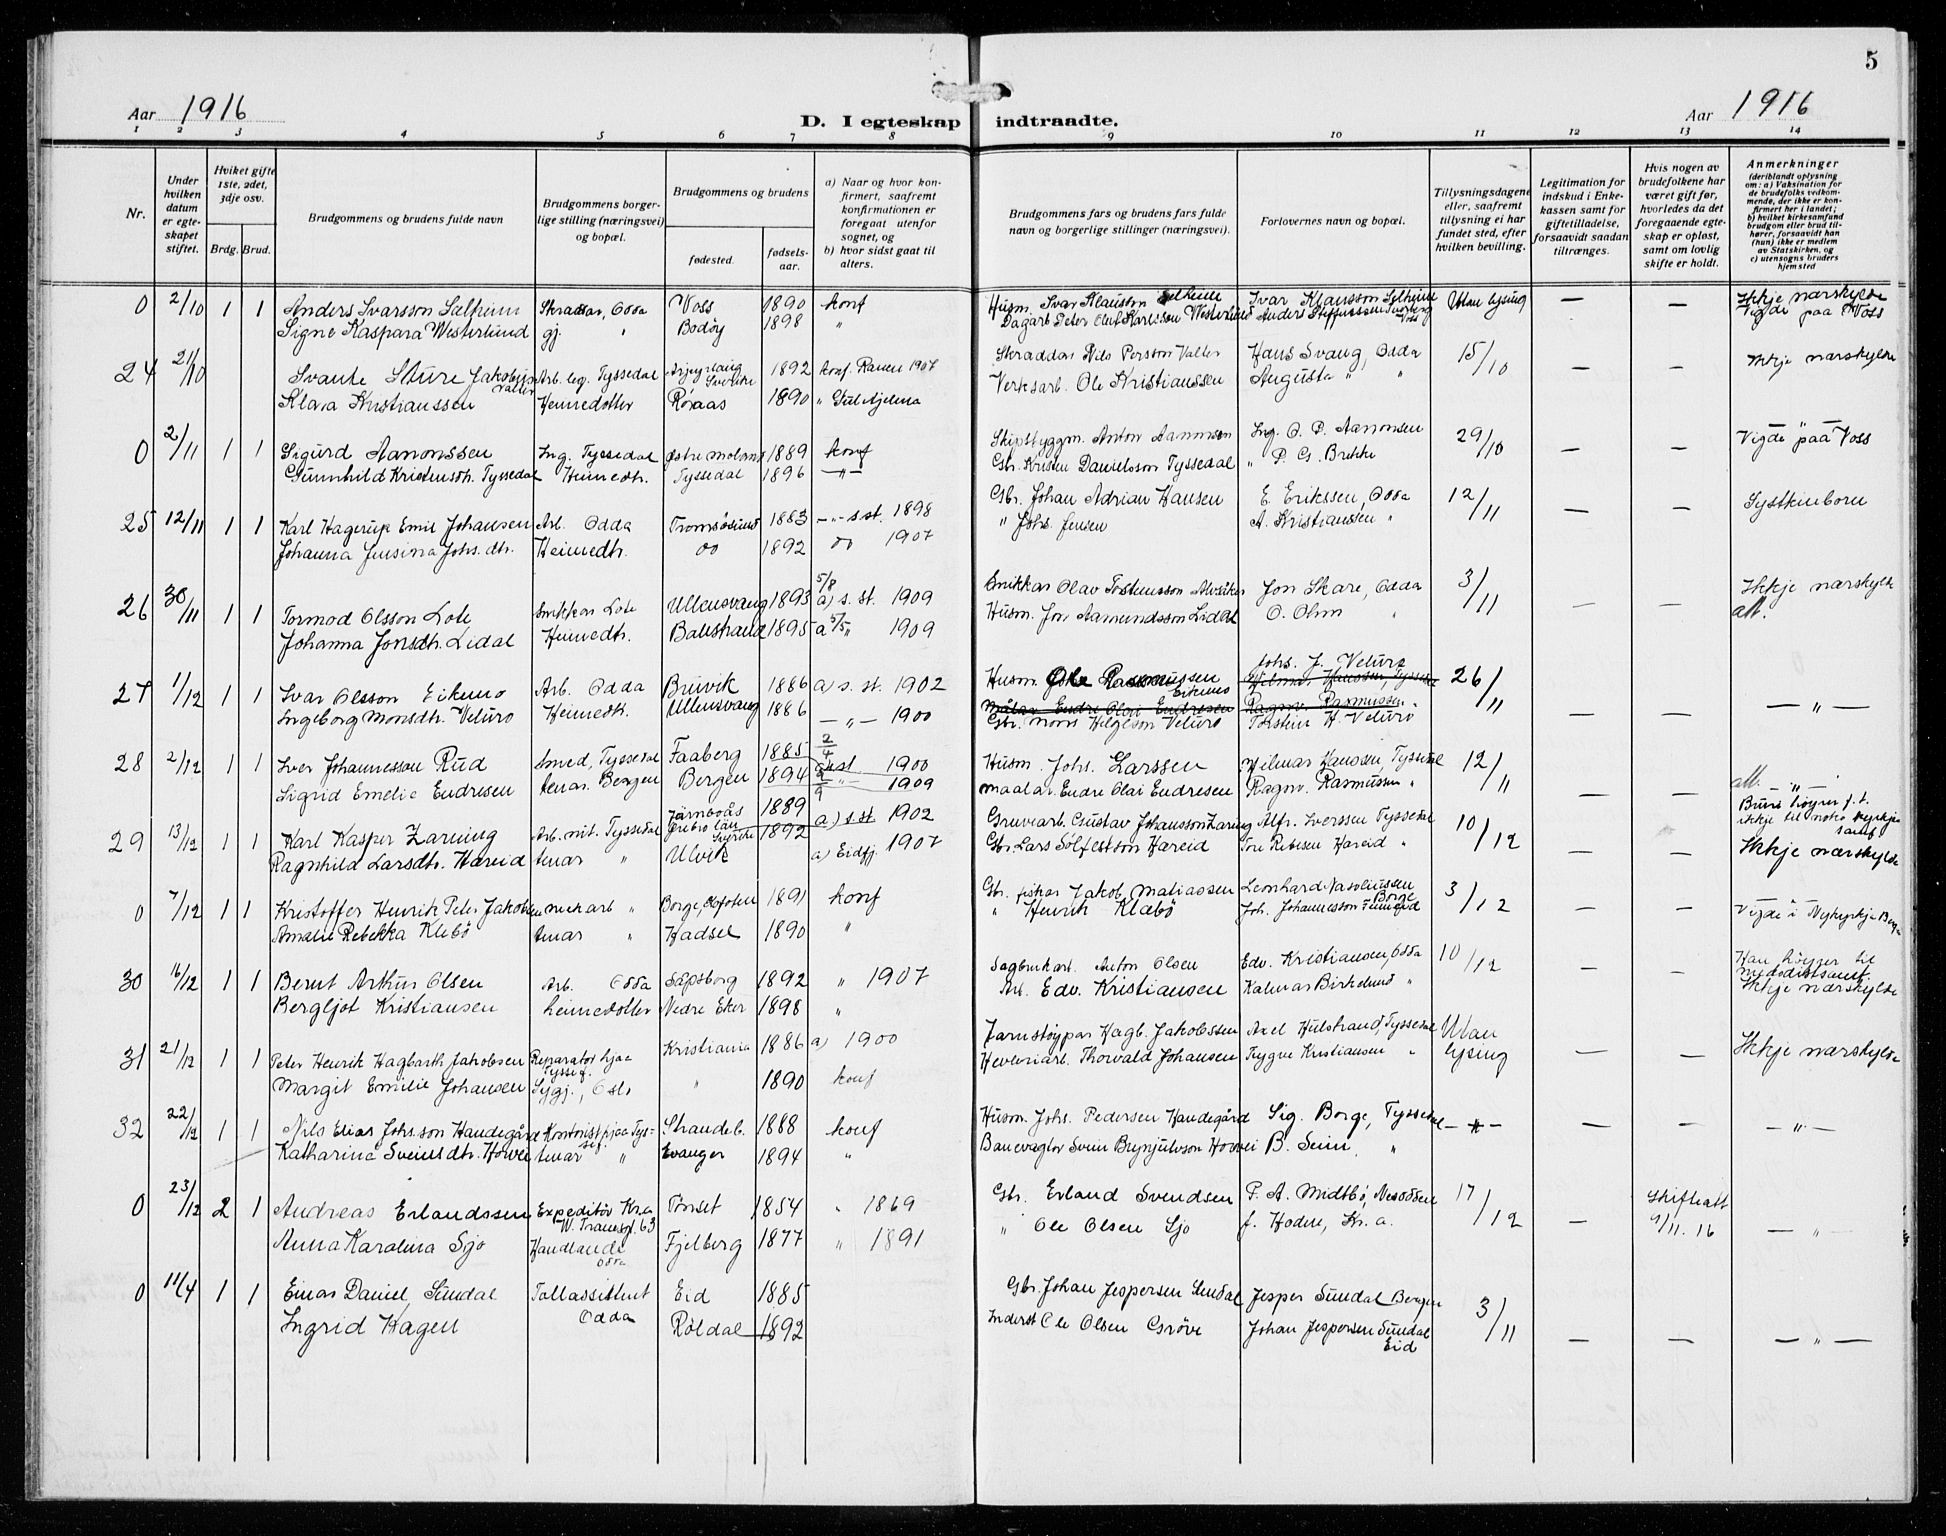 5
Aar 1916
D. I egteskap indtraadte.
Aar 1916
1 2 3 4 5 6 7 8 9 10 11 12 13 14
Nr.
Under hvilken datum er egteskapet stiftet.
Hviket gifte 1ste, 2det, 3dje osv.
Brdg. Brud.
Brudgommens og brudens fulde navn
Brudgommens borgerlige stilling (næringsvei) og bopæl.
Brudgommens og brudens
fødested.
fødselsaar.
a) Naar og hvor konfirmert, saafremt konfirmationen er foregaat utenfor sognet, og
b) hvor sidst gaat til alters.
Brudgommens fars og brudens fars fulde navn og borgerlige stillinger (næringsvei).
Forlovernes navn og bopæl.
Tillysningsdagene eller, saafremt tillysning ei har fundet sted, efter hvilken bevilling.
Legitimation for indskud i Enkekassen samt for giftetilladelse, forsaavidt saadan tiltrænges.
Hvis nogen av brudefolkene har været gift før, hvorledes da det foregaaende egteskap er opløst, samt om lovlig skifte er holdt.
Anmerkninger
(deriblandt oplysning om: a) Vaksination for de brudefolks vedkommende, der ikke er konfirmert her i landet; b) hvilket kirkesamfund brudgom eller brud tilhører, forsaavidt han (hun) ikke er medlem av Statskirken, og c) utensogns bruders hjemsted
0 2/10 1 1 Anders Ivarsson Selheim Skraddar, Odda Voss 1890 konf Husm. Ivar Klausson Selheim Ivar Klausson Selheim Utan lysing — — Ikkje nærskylde
Signe Kaspara Westerlund gj. " Bodøy 1898 " Dagarb. Peter Oluf Karlssen Westerlund Vigde paa Voss
24 21/10 1 1 Svante Sture Jakobsson Valter Arb. leg. Tyssedal Sverike 1892 konf. Ranen 1907 Skraddar Nils Persson Valter Hans Svang, Odda 15/10 — — Ikkje nærskylde
Klara Kristianssen Heimedotter Røraas 1890 " Verksarb. Ole Kristianssen Augusta " "
0 2/11 1 1 Sigurd Aanonssen Ing. Tyssedal Østre Moland 1889 konf Skipsbyggm. Anton Aanonsen Ing. O. P. Aanonsen 29/10 — — Vigde paa Voss
Gunnhild Kristensdh. Tyssedal Heimedtr. Tyssedal 1896 —"— Gbr. Kristen Danielsson Tyssedal " P. G. Brekke
25 12/11 1 1 Karl Hagerup Emil Johansen Arb. Odda Tromsøsund 1883 —"— s. st. 1898 Gbr. Johan Adrian Hansen E. Erikssen, Odda 12/11 — — Syskinborn
Johanna Jensina Johs. dtr. Heimedtr. do 1892 do 1907 " Johs. Jensen A. Kristiansen "
26 30/11 1 1 Tormod Olsson Lote Snikkar Lote Ullensvang 1893 5/8 a) s. st. 1909 Snikkar Olav Torsteinsson Jon Skare, Odda 3/11 — — Ikkje nærskylde
Johanna Jonsdtr. Lidal Heimedtr. Balestrand 1895 a 5/5 " 1909 Husm. Jon Aamundsson Lidal O. Ohm " att.
27 1/12 1 1 Ivar Olsson Eikemo Arb. Odda Bruvik 1886 a) s. st. 1902 Husm. Ole Rasmussen Eikemo Johs. J. Veturo 26/11 — — —"—
Hilmar Hanssen, Tyssedal
Ingeborg Monsdtr. Veturo Heimedtr. Ullensvang 1886 —"— 1900 Målar Endre Olai Endresen Ragnv. Rasmussen "
Gbr. Mons Helgeson Veturo Torstein H. Veturo
28 2/12 1 1 Iver Johannesson Rud Smed, Tyssedal Faaberg 1885 2/4 a) s. st 1900 Husm. Johs. Larssen Hilmar Hanssen, Tyssedal 12/11 att. —"—
Sigrid Emelie Endresen tenar. Bergen Bergen 1894 " 1909 maalar Endre Olai Endresen Ragnv. Rasmussen "
29 13/12 1 1 Karl Kasper Zarning Arb. mit. Tyssedal Järnboås Örebro län Sverike 1889 a) s. st 1902 Gruvearb. Gustav Johansson Zarning Alfr. Iverssen Tyssedal 10/12 — — Ikkje nærskylde
Ragnhild Larsdtr. Hareid tenar " Ulvik 1892 a) Eidfj. 1907 Gbr. Lars Sølfestson Hareid Tore Hareid "
0 7/12 1 1 Kristoffer Henrik Peter Jakobsen mekarb " Borge, Lofoten 1891 konf Gbr. fiskar Jakob Matiassen Leonhard Borge 3/12 — — Vigde i Nykyrkja Bergen
Amalie Rebekka Klebo tenar " Hadsel 1890 " " Henrik Klabö Joh. Johannesson
30 16/12 1 1 Bernt Arthur Olsen Arb. Odda Sarpsborg 1892 " 1907 Sagbrukarb. Anton Olsen Edv. Kristiansen, Odda 10/12 — — Han høyrer til metodistsamf.
Bergljot Kristiansen heimedotter Nedre Eker 1898 " Arb. Edv. Kristiansen Kalmar Birkelund " Ikkje nærskylde
31 21/12 1 1 Peter Henrik Hagbarth Jakobsen Reparatør hjaa Tyssef. Kristiania 1886 a) 1900 Jarnstøypar Hagb. Jakobssen Axel Hulstrand, Tyssedal Utan lysing — — Ikkje nærskylde
Margit Emilie Johansen Sygj., Oslo " 1890 konf Høvleriarb. Thorvald Johansen Trygve Kristiansen "
32 22/12 1 1 Nils Elias Johs.son Handegård Kontorist hjaa Tyssef. Strandeb. 1888 konf Husm. Johs. Pedersen Handegård Sig. Borge, Tyssedal —"— — — —"—
Katharina Sveinsdtr. Horvei tenar " Evanger 1894 " Banevagtor Svein Brynjulvson Horvei B. Seim "
0 23/12 2 1 Andreas Erlandssen Expeditör Kr.a W. Transgt. 63 1854 " 1869 Gbr. Erland Svendsen P. A. Midtbö, Nesodden 17/12 — Skifteatt 9/11. 16 —"—
Anna Karolina Sjo Handlande Odda Fjelberg 1877 " 1891 " Ole Olsen Sjo J. Hodne, Kr. a.
0 11/4 1 1 Einar Daniel Sundal Tollassistent Odda Eid 1885 Gbr. Johan Jespersen Sundal Jesper Sundal Bergen 3/11 — — —"—
Ingrid Hagen Røldal 1892 Inderst Ole Olsen Grøve Johan Jespersen Sundal Eid